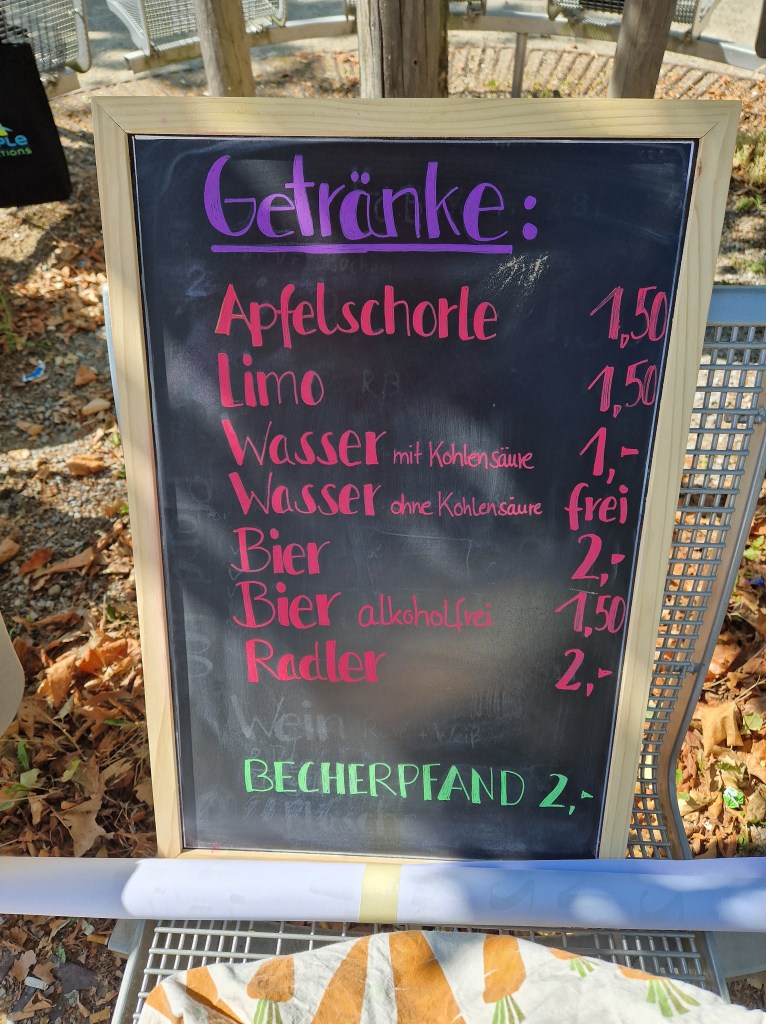 Getränke:
Apfelschorle 1,50
Limo 1,50
Wasser mit Kohlensäure 1,-
Wasser ohne Kohlensäure frei
Bier 2,-
Bier alkoholfrei 1,50
Radler 2,-
Wein + Weiß
BECHERPFAND 2,-